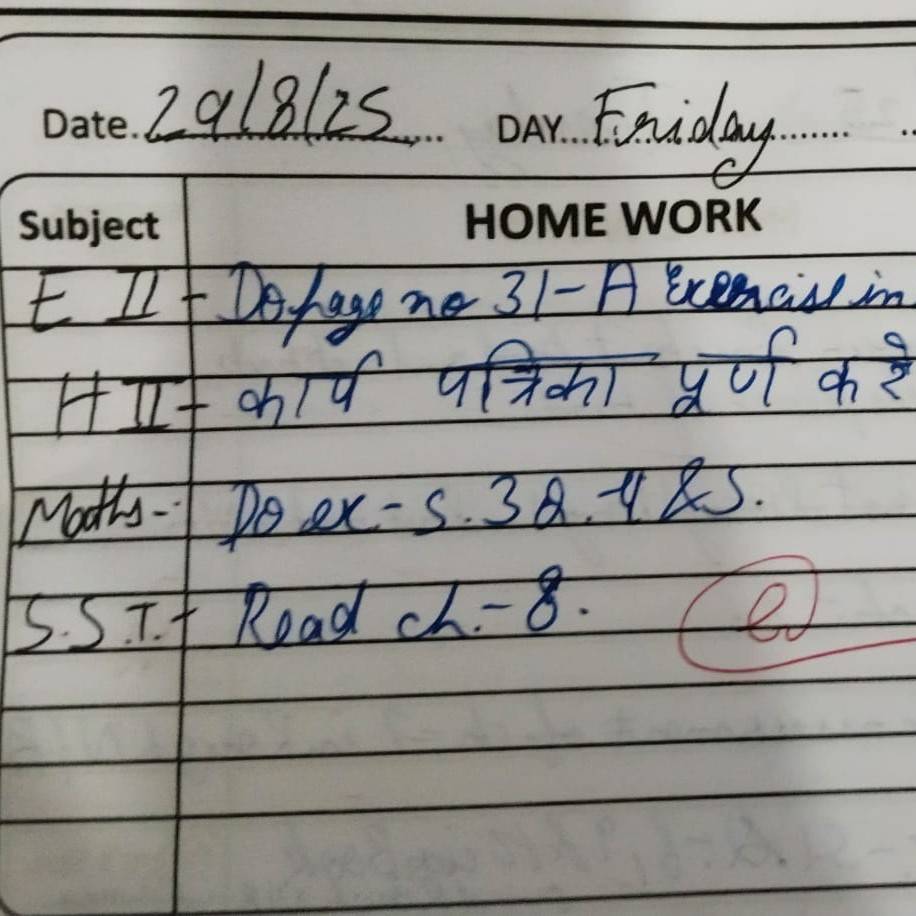 Date. 29/8/25 .... DAY... Friday ........
Subject HOME WORK
E II - Do page no 31-A Exercise in
H II - कार्य पत्रिका पूर्ण करे
Maths - Do ex - 5.3 Q. - 4 & 5.
S.S.T. - Read ch. - 8.